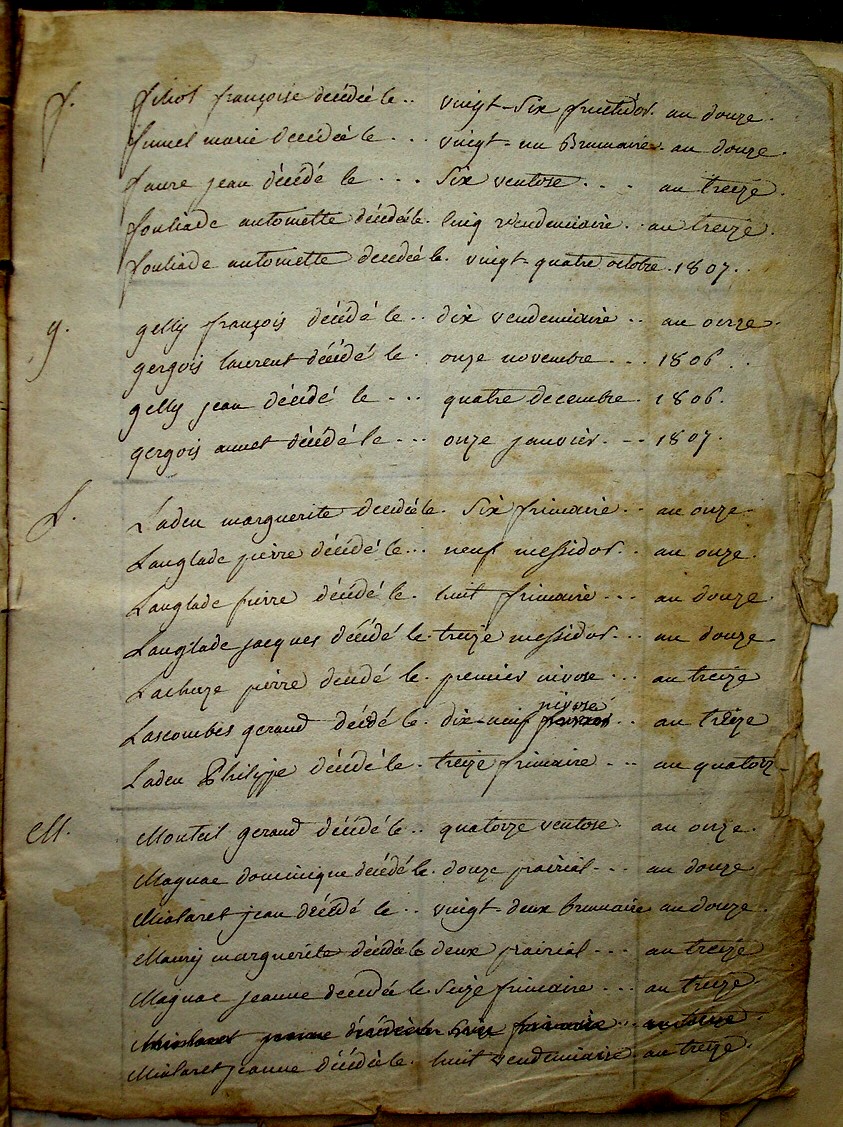 f. filiol françoise décédée le .. vingt-six fructidor. an douze.
funel marie décédée le ... vingt-un Brumaire. an douze.
faure jean décédé le ... six ventose .... an treize.
fouliade antoinette décédée le. cinq vendemiaire .. an treize.
fouliade antoinette decedeé le. vingt-quatre octobre. 1807..
g. gelly françois décédé le .. dix vendemiaire .. an onze.
gergois laurent décédé le. onze novembre ... 1806..
gelly jean décédé le ... quatre decembre. 1806.
gergois annet décédé le ... onze janvier. -- 1807.
L. Ladeu marguerite decedée le. six frimaire .. an onze.
Langlade pierre décédé le... neuf messidor.. an onze.
Langlade pierre décédé le. huit frimaire ... an douze.
Langlade jacques décédé le. treize messidor... an douze.
Lachaze pierre decedé le. premier nivose ... an treize
nivose
Lascombes geraud décédé le. dix-neuf .. an treize
Ladeu Philippe décédé le. treize frimaire ... an quatorz-
M. Monteil geraud décédé le .. quatorze ventose. an onze.
Magnac dominique décédé le. douze prairial... an douze
Mialaret jean décédé le .. vingt-deux brumaire an douze.
Maury marguerite décédée le deux prairial ... an treize
Magnac jeanne decedée le seize frimaire ... an treize.
Mialaret jeanne décédée le seize frimaire .. an treize.
Mialaret jeanne décédée le. huit vendemiaire an treize.